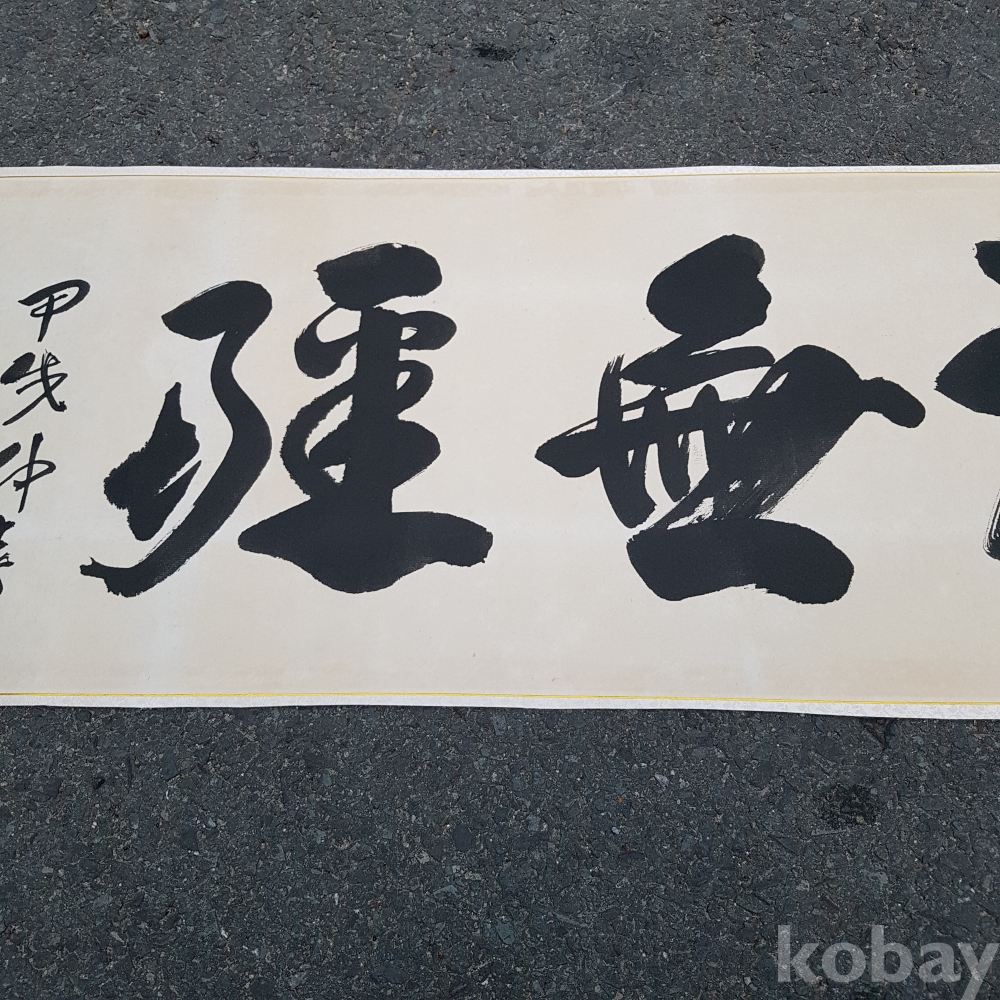 無疆
甲戌仲
kobay